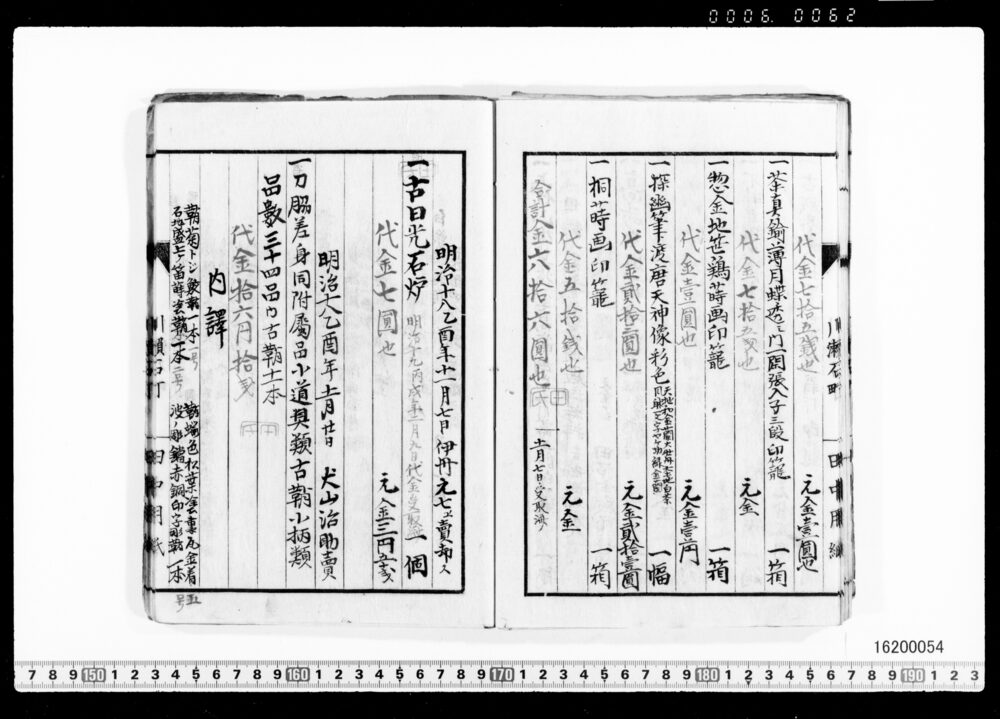 0006. 0062
代金七拾五銭也
元金壹圓也
一茶真鍮薄月蝶透シ門一閑張入子三段印籠 一箱
代金七拾五銭也
元金
一惣金地笹鶏蒔画印籠 一箱
代金壹圓也
元金壹円
一探幽筆渡唐天神像彩色 一幅
代金貳拾三圓也
元金貳拾壹圓
一桐蒔画印籠 一箱
代金五拾銭也
元金
合計金六拾六圓也
十一月七日受取済
川瀬石町
田中用紙
明治十八乙酉年十一月七日伊丹元七エ賣却ス
一古日光石炉 一個
明治十九丙戌年一月九日代金受取
代金七圓也
元金三円五十戋
明治十八乙酉年十一月廿日 犬山治助賣
一刀脇差身同附属品小道具類古鞘小柄類
品数三十四品内古鞘十一本
代金拾六円拾戋
内譯
鞘菊トジ鮫鞘一本一号
鞘一本二号
一本
五号
川瀬石町
田中用紙
16200054
7 8 9 150 1 2 3 4 5 6 7 8 9 160 1 2 3 4 5 6 7 8 9 170 1 2 3 4 5 6 7 8 9 180 1 2 3 4 5 6 7 8 9 190 1 2 3